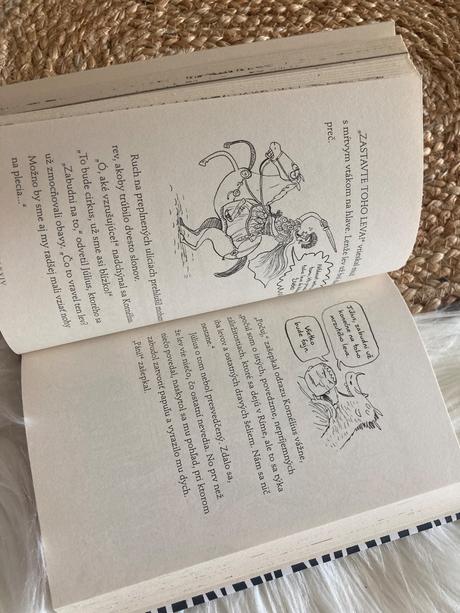 „ZASTAVTE TOHO LEVA!“
s mŕtvym vtákom na hlave. Lenže lev už bol
preč.
Ruch na preplnených uliciach prehlušil
rev, akoby trúbilo dvesto slonov.
„Ó, aké vzrušujúce!“ nadchýnal sa Kornélius.
„To bude cirkus, už sme asi blízko!“
„Zabudni na to,“ odvetil Július, ktorého sa
už zmocňovali obavy. „Čo to vravel ten lev?
Možno by sme aj my radšej mali vziať nohy
na plecia...“
XXIV
Július, zabudni už
konečne na toho
mrzutého leva.
Všetko
bude fajn.
„Počuj,“ zašepkal odrazu Kornélius vážne,
„počul som o istých, povedzme, nepríjemných
záležitostiach, ktoré sa dejú v Ríme, ale to sa týka
iba levov a ostatných dravých šeliem. Nám sa nič
nestane.“
Július o tom nebol presvedčený. Zdalo sa,
že lev vie niečo, čo ostatní nevedia. No prv než
niečo povedal, naskytol sa mu pohľad, pri ktorom
zabudol zatvoriť papuľu a vyrazilo mu dych.
„Páni!“ zašepkal.